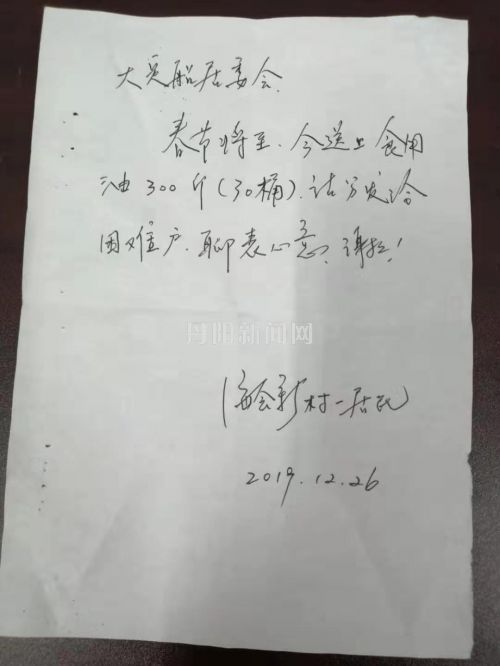 大 船居委会.
春节将至,今送上食用
油300斤(30桶).请分发给
困难户,聊表心意,谢!
丹阳新闻网
海会新村一居民
2019.12.26